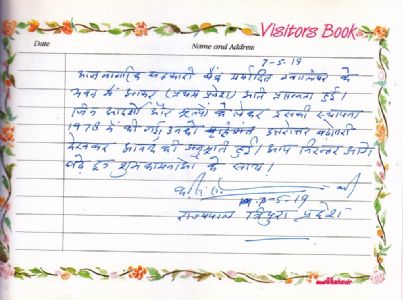 Visitors Book
Date Name and Address
7-5-19
आज नागरिक सहकारी बैंक मर्यादित ग्वालियर के
भवन में आकर (प्रथम प्रवेश) अति प्रसन्नता हुई।
जिन आदर्शों और मूल्यों को लेकर इसकी स्थापना
1978 में की गई, उनकी उत्तरोत्तर बढ़ोतरी
देखकर आनंद की अनुभूति हुई। आप निरन्तर आगे
बढ़े इन शुभकामनाओं के साथ।
7-5-19
राज्यपाल त्रिपुरा प्रदेश